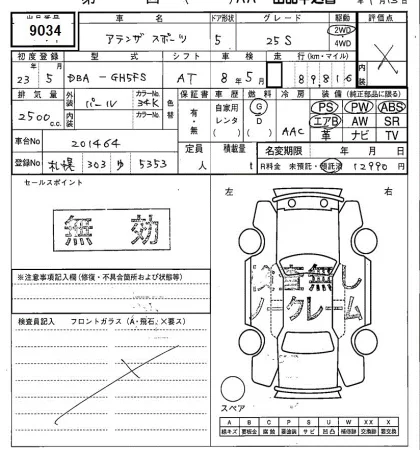 9034
車名 ドア形状 グレード 駆動 評価点
アテンザ スポーツ 5 25S 2WD 4WD
初度登録 型式 シフト 車検 走行(km・マイル) 内装
23年5月 DBA-GH5FS AT 8年5月 89,816
排気量 外装 カラーNo. 色替 保証書 車歴 燃料 冷房 装備(純正部品に限る)
2500c.c. パール 34K 有・無 自家用 レンタ G D AAC PS PW ABS
エアB AW SR
革 ナビ TV
内装 カラーNo.
車台No 201464 定員 人 積載量 t 名変期限 年 月 日
登録No 札幌 303 ゆ 5353 R料金 未預託・預託済 12990円
セールスポイント
無効
左 右
※注意事項記入欄(修復・不具合箇所および状態等)
検査無し
ノークレーム
検査員記入 フロントガラス(A・飛石、×要ス)
スペア
A B C P S U W X XX